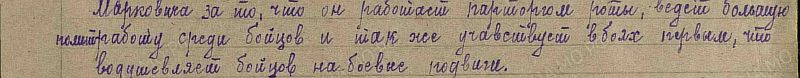 Марковича за то, что он работает парторгом роты, ведет большую
политработу среди бойцов и так же учавствует в боях первым, что
водушевляет бойцов на боевые подвиги.